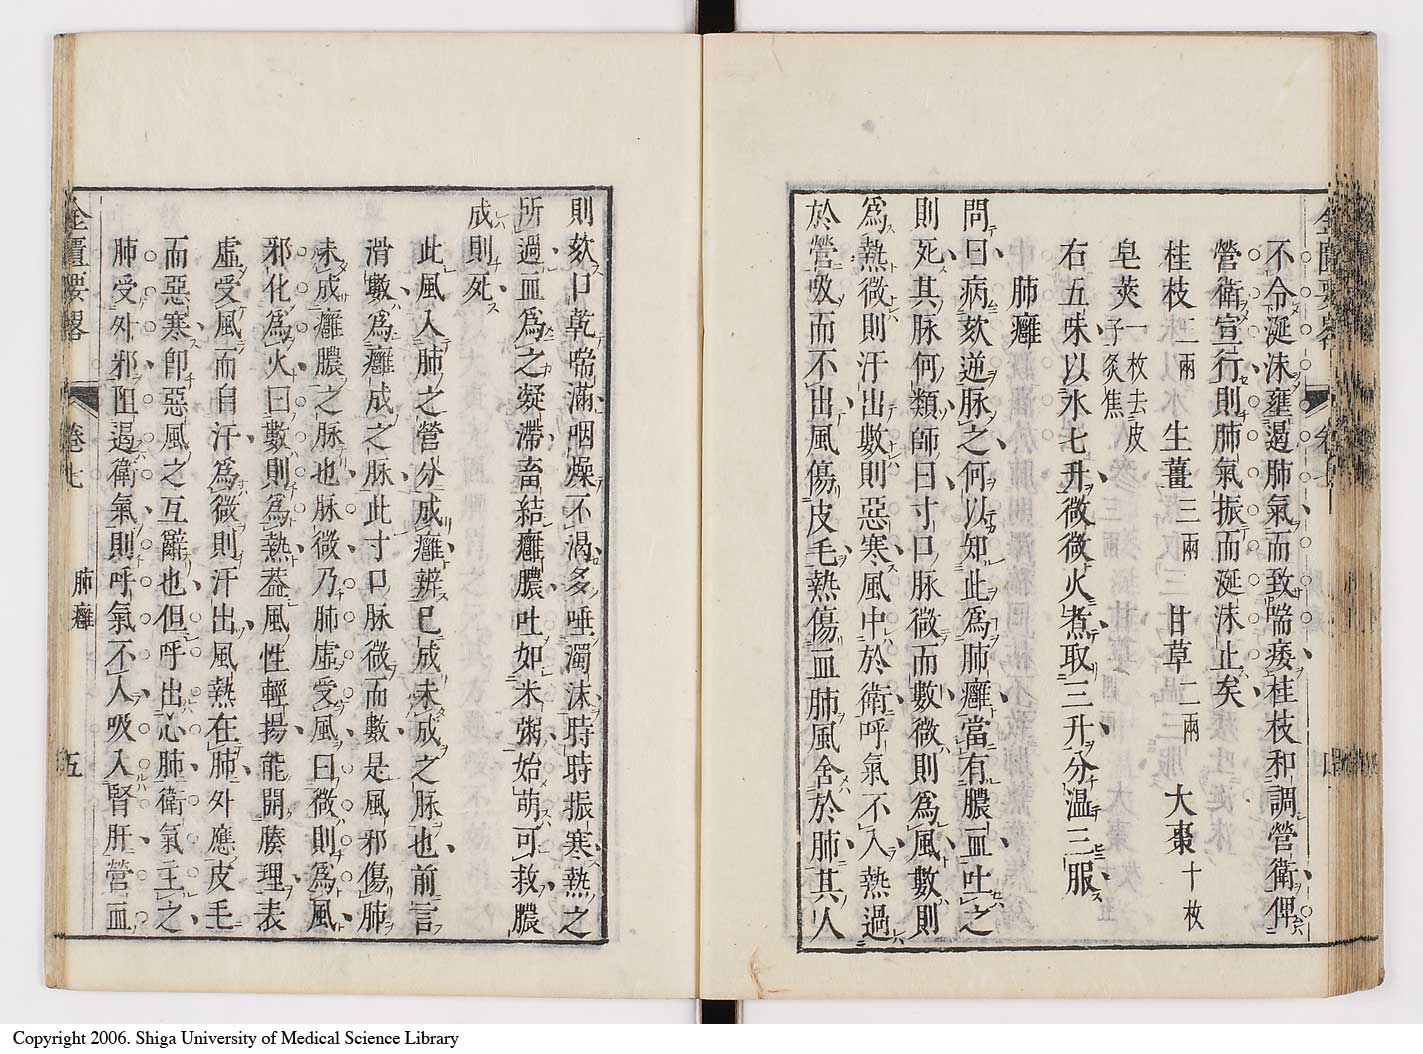 不令涎沫壅遏肺氣而致喘痿桂枝和調營衛俾
營衛宣行則肺氣振而涎沫止矣
桂枝二兩 生薑三兩 甘草二兩 大棗十枚
皂莢一枚去皮子炙焦
右五味以水七升微微火煮取三升分温三服
肺癰
問曰病欬逆脉之何以知此爲肺癰當有膿血吐之
則死其脉何類師曰寸口脉微而數微則爲風數則
爲熱微則汗出數則惡寒風中於衛呼氣不入熱過
於營吸而不出風傷皮毛熱傷血脉風舍於肺其人
則欬口乾喘滿咽燥不渴多唾濁沫時時振寒熱之
所過血爲之凝滯畜結癰膿吐如米粥始萌可救膿
成則死
此風入肺之營分成癰辨已成未成之脉也前言
滑數爲癰成之脉此寸口脉微而數是風邪傷肺
未成癰膿之脉也脉微乃肺虛受風曰微則爲風
邪化爲火曰數則爲熱葢風性輕揚能開腠理表
虛受風而自汗爲微則汗出風熱在肺外應皮毛
而惡寒卽惡風之互辭也但呼出心肺衛氣主之
肺受外邪阻遏衛氣則呼氣不入吸入腎肝營血
金匱要畧 卷七 肺癰 五
Copyright 2006. Shiga University of Medical Science Library